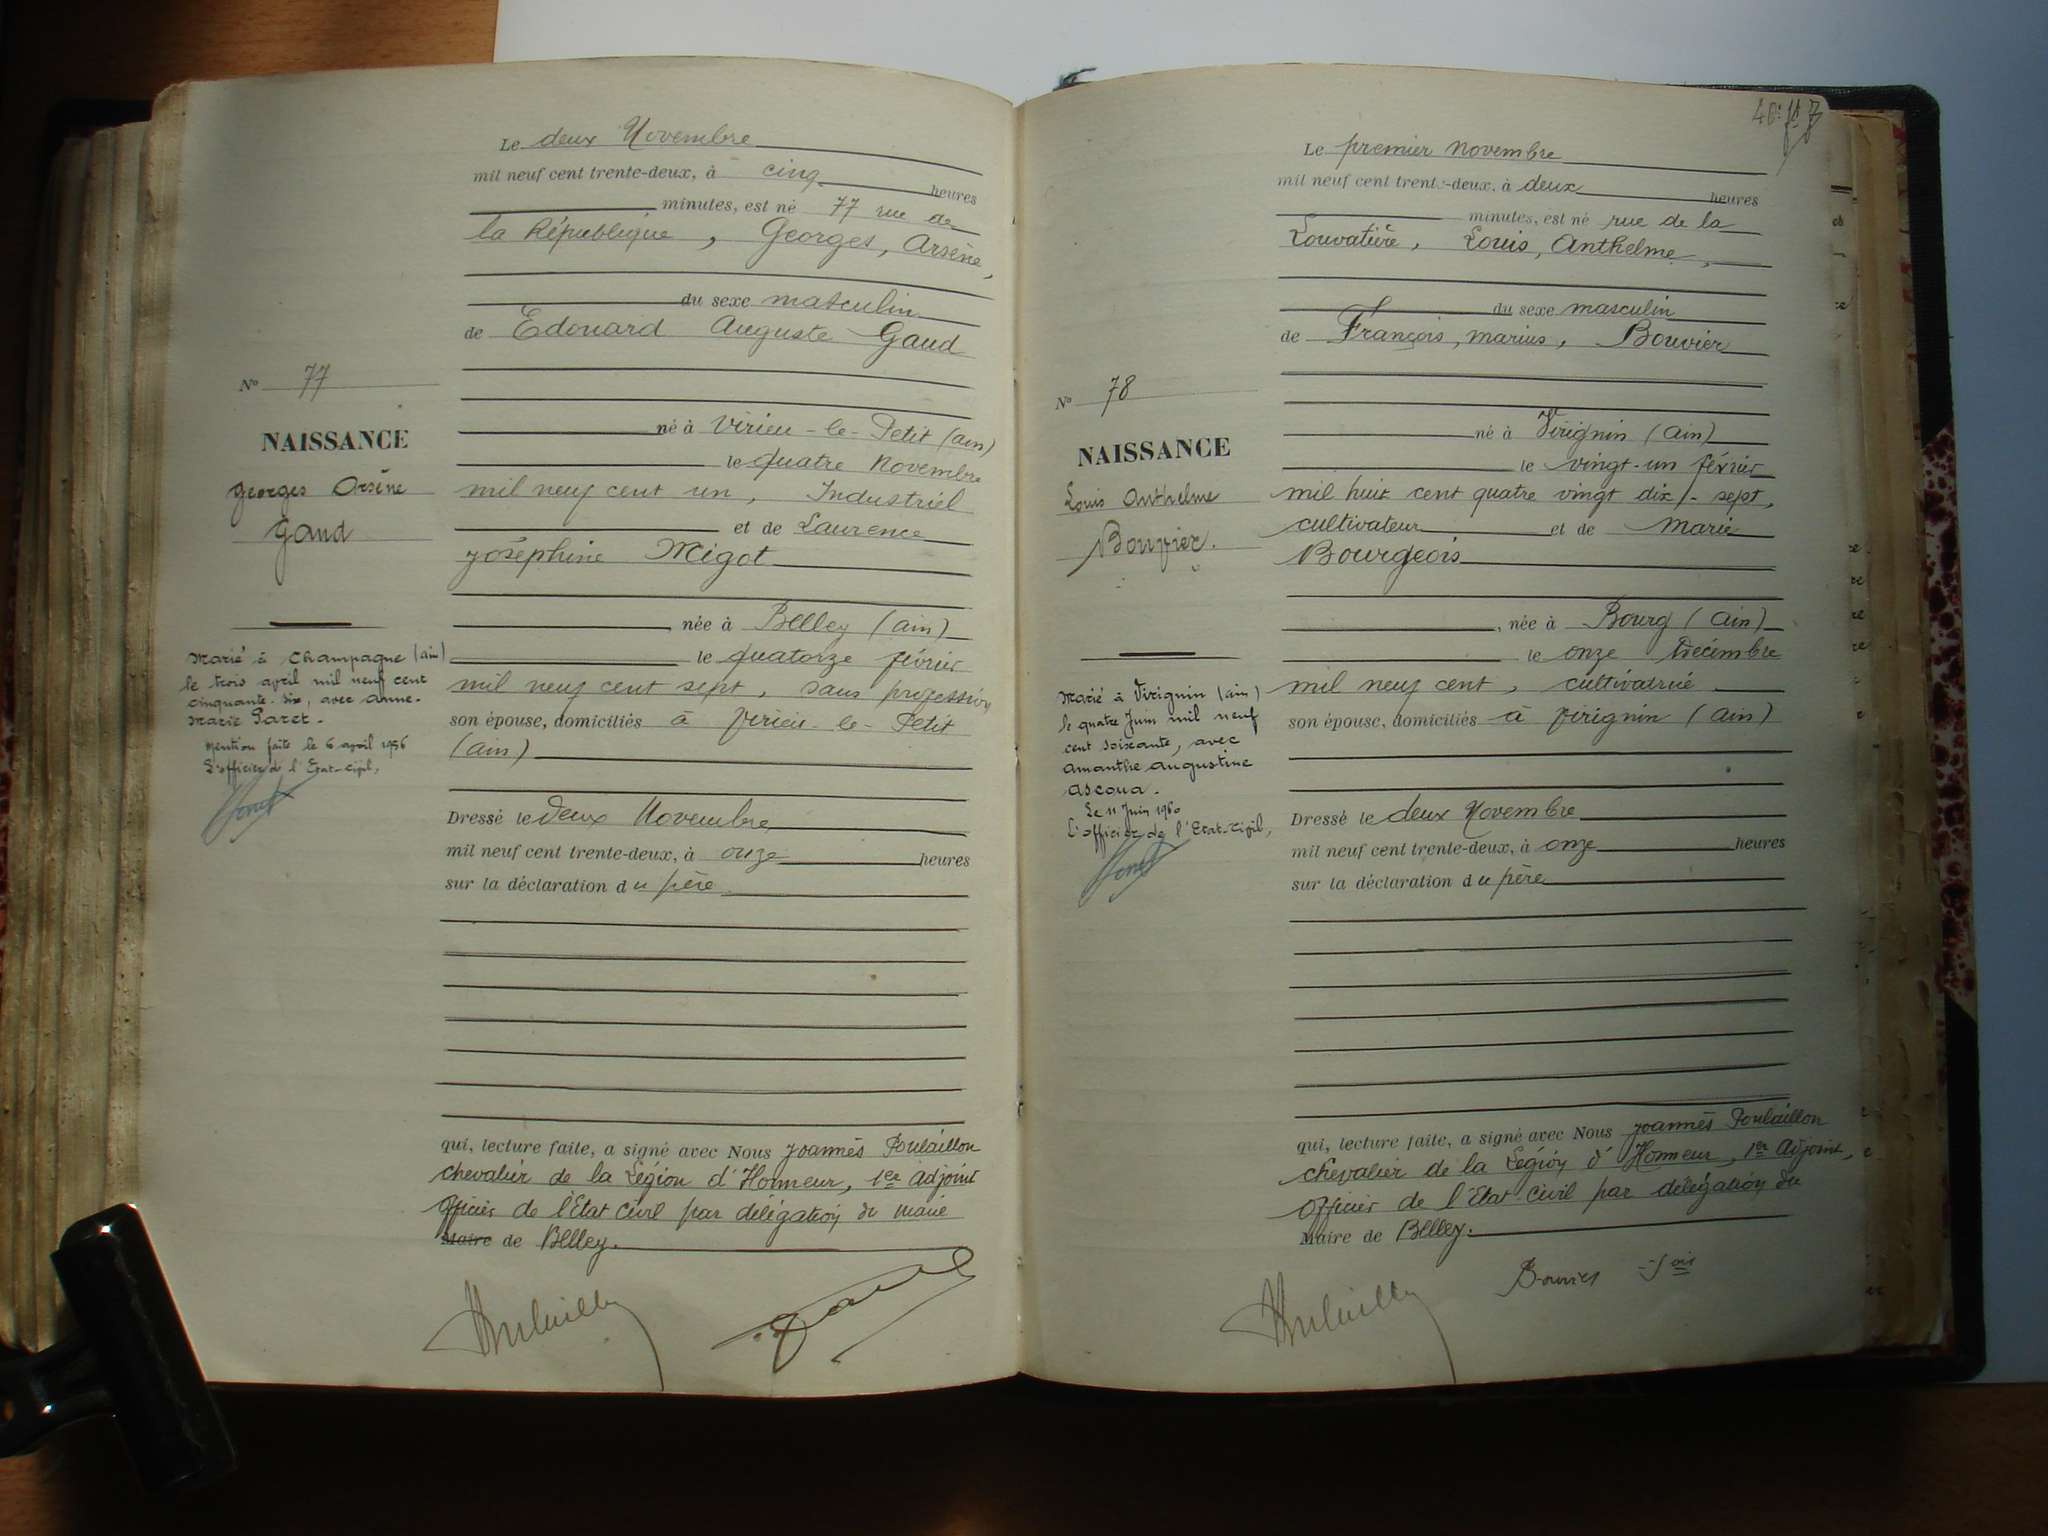 Le deux Novembre
mil neuf cent trente-deux, à cinq heures
minutes, est né 77 rue de
la République, Georges, Arsène,
du sexe masculin
de Edouard Auguste Gaud
né à Virieu-le-Petit (ain)
le quatre Novembre
mil neuf cent un, Industriel
et de Laurence
Joséphine Migot
née à Belley (ain)
le quatorze février
mil neuf cent sept, sans profession
son épouse, domiciliés à Virieu-le-Petit
(ain)
Dressé le deux Novembre
mil neuf cent trente-deux, à onze heures
sur la déclaration du père
qui, lecture faite, a signé avec Nous Joannès Poulaillon
chevalier de la Légion d'Honneur, 1er adjoint
officier de l'Etat civil par délégation du maire
Maire de Belley.
N° 77
NAISSANCE
Georges Arsène
Gaud
Marié à Champagne (ain)
le trois avril mil neuf cent
cinquante-six, avec Anne-
Marie Paret.
Mention faite le 6 avril 1956
L'officier de l'Etat-civil,
Le premier novembre
mil neuf cent trente-deux, à deux heures
minutes, est né rue de la
Louvatière, Louis, Anthelme,
du sexe masculin
de François, marius, Bouvier
né à Virignin (ain)
le vingt-un février
mil huit cent quatre vingt dix-sept,
cultivateur et de Marie
Bourgeois
née à Bourg (ain)
le onze Décembre
mil neuf cent, cultivatrice
son épouse, domiciliés à Virignin (ain)
Dressé le deux Novembre
mil neuf cent trente-deux, à onze heures
sur la déclaration du père
qui, lecture faite, a signé avec Nous Joannès Poulaillon
chevalier de la Légion d'Honneur, 1er adjoint,
officier de l'Etat-civil par délégation du
Maire de Belley.
Bouvier
N° 78
NAISSANCE
Louis Anthelme
Bouvier.
Marié à Virignin (ain)
le quatre Juin mil neuf
cent soixante, avec
Amanthe Augustine
Ascoua.
Le 11 Juin 1960
L'officier de l'Etat-civil,